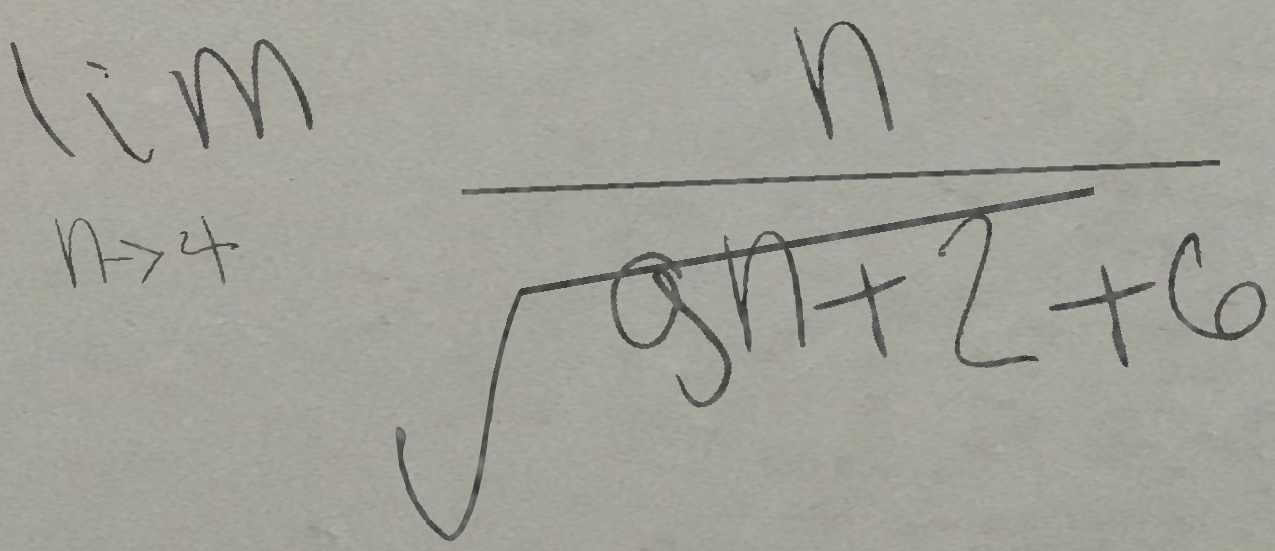 lim n
n→4 √9n+2+6